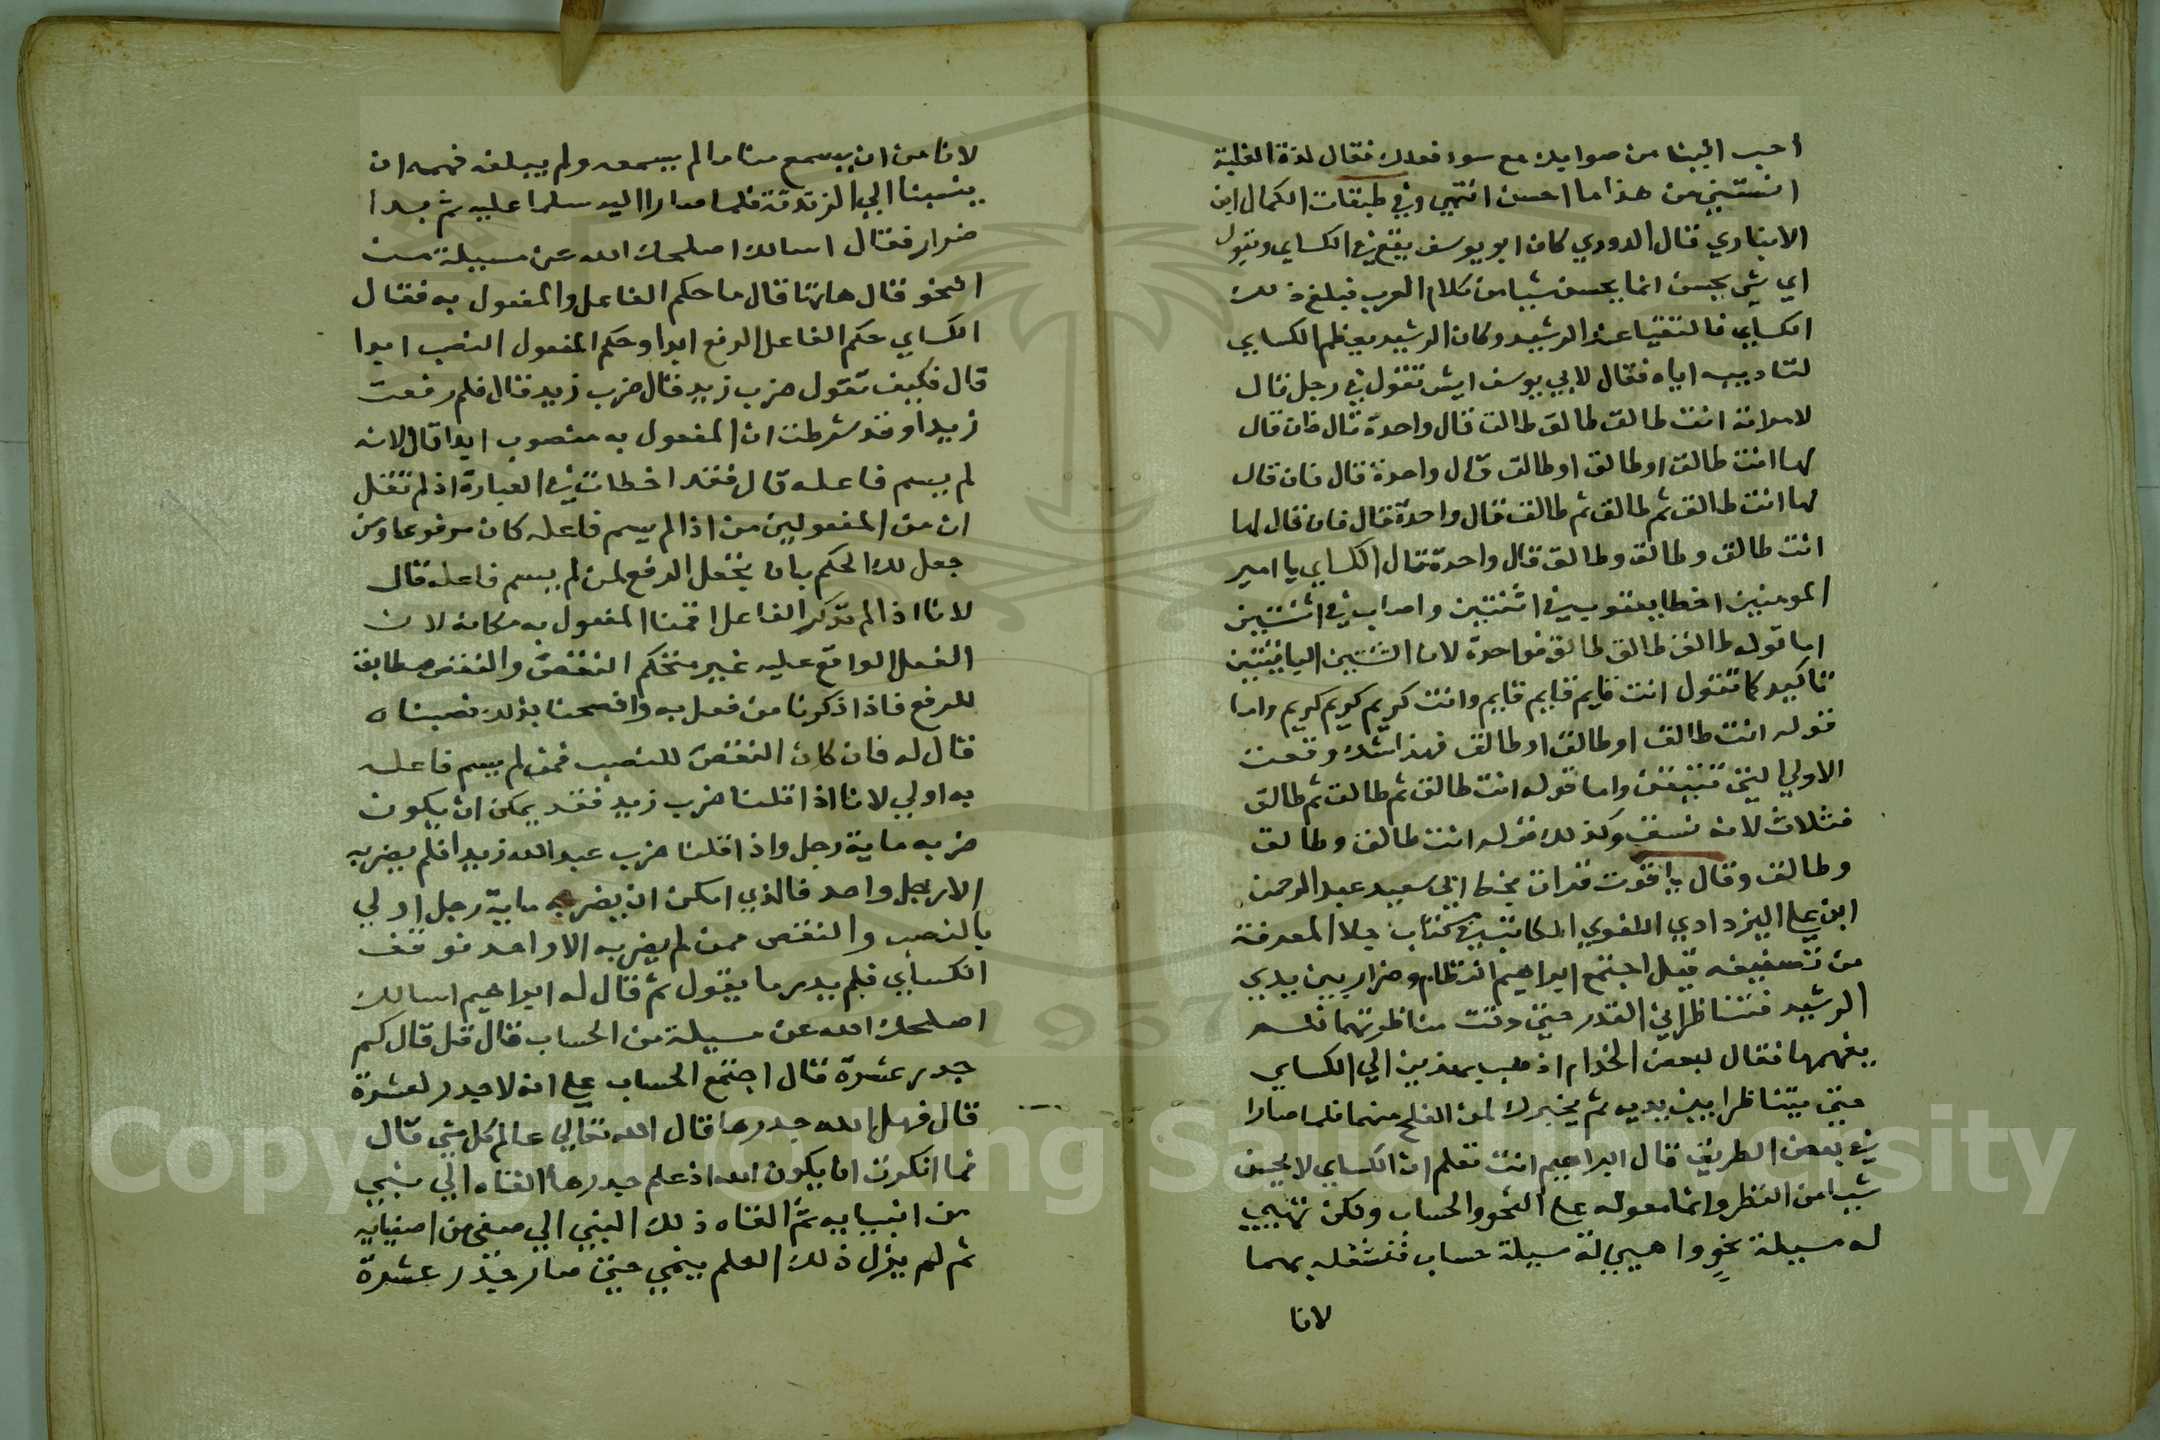 احب الينا من صوابك مع سوء فعلك فقال لذة الغلبة
انستني من هذا ما احسن انتهي وفي طبقات الكمال ابن
الانباري قال الدوري كان ابو يوسف يقع في الكساي ويقول
اي شي يحسن انما يحسن شيا من كلام العرب فبلغ ذلك
الكساي فالتقيا عند الرشيد وكان الرشيد يعظم الكساي
لتاديبه اياه فقال لابي يوسف ايش تقول في رجل قال
لامراته انت طالق طالق طالق قال واحدة قال فان قال
لها انت طالق او طالق او طالق قال واحدة قال فان قال
لها انت طالق ثم طالق ثم طالق قال واحدة قال فان قال لها
انت طالق وطالق وطالق قال واحدة فقال الكساي يا امير
المومنين اخطا يعقوب في اثنتين واصاب في اثنتين
اما قوله طالق طالق طالق فواحدة لان الثنتين الباقيتين
تاكيد كما تقول انت قايم قايم قايم وانت كريم كريم كريم واما
قوله انت طالق او طالق او طالق فهذا شك وقعت
الاولي التي تتيقن واما قوله انت طالق ثم طالق ثم طالق
فثلاث لانه نسق وكذلك قوله انت طالق وطالق
وطالق وقال ياقوت قرات بخط ابي سعيد عبد الرحمن
ابن علي اليزدادي اللغوي الكاتب في كتاب جلا المعرفة
من تصنيفه قيل اجتمع ابراهيم النظام وضرار بين يدي
الرشيد فتناظرا في القدر حتي دقت مناظرتهما فلم
يفهمها فقال لبعض الخدام اذهب بهذين الي الكساي
حتي يتناظرا بين يديه ثم يخبرك لمن الفلج منهما فلما صارا
في بعض الطريق قال ابراهيم انت تعلم ان الكساي لا يحسن
شيا من النظر وانما معوله علي النحو والحساب ولكن تهيي
له مسيلة نحو واهيي له مسيلة حساب فنشغله بهما
لانا
لانامن ان يسمع منا مالم يسمعه ولم يبلغه فهمه ان
ينسبنا الي الزندقة فلما صارا اليه سلما عليه ثم بدا
ضرار فقال اسالك اصلحك الله عن مسيلة من
النحو قال هاتها قال ما حكم الفاعل والمفعول به فقال
الكساي حكم الفاعل الرفع ابدا وحكم المفعول النصب ابدا
قال فكيف تقول ضرب زيد قال ضرب زيد قال فلم رفعت
زيدا وقد شرطت ان المفعول به منصوب ابدا قال لانه
لم يسم فاعله قال فقد اخطات في العبارة اذ لم تقل
ان من المفعولين من اذا لم يسم فاعله كان مرفوعا ومن
جعل لك الحكم بان تجعل الرفع لمن لم يسم فاعله قال
لانا اذا لم نذكر الفاعل اقمنا المفعول به مكانه لان
الفعل الواقع عليه غير مستحكم النقص والنقص مطابق
للرفع فاذا ذكرنا من فعل به وافصحنا بذلك نصبناه
قال له فان كان النقص للنصب فمن لم يسم فاعله
به اولي لانا اذا قلنا ضرب زيد فقد يمكن ان يكون
ضربه ماية رجل واذا قلنا ضرب عبد الله زيدا فلم يضربه
الا رجل واحد فالذي امكن ان يضربه ماية رجل اولي
بالنصب والنقص ممن لم يضربه الا واحد فوقف
الكساي فلم يدر ما يقول ثم قال له ابراهيم اسالك
اصلحك الله عن مسيلة من الحساب قال قل قال كم
جدر عشرة قال اجتمع الحساب علي انه لا جدر لعشرة
قال فهل الله جدرها قال الله تعالي عالم كل شي قال
فما انكرت ان يكون الله اذ علم جدرها القاه الي نبي
من انبيايه ثم القاه ذلك النبي الي صفي من اصفيايه
ثم لم يزل ذلك العلم ينمي حتي صار جدر عشرة